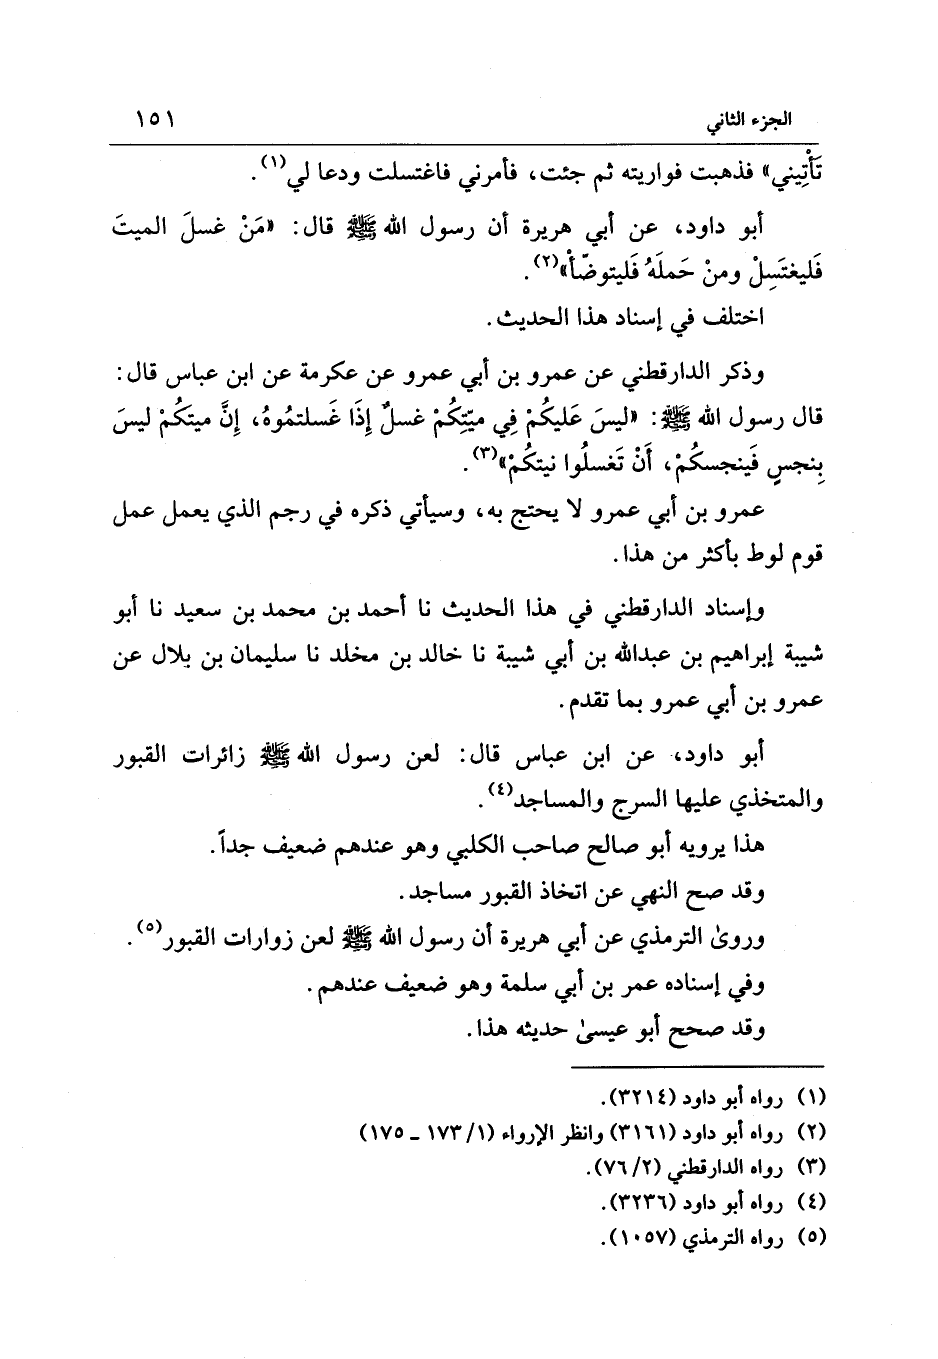 الجزء الثاني ١٥١
تَأْتِيني» فذهبت فواريته ثم جئت، فأمرني فاغتسلت ودعا لي(١).
أبو داود، عن أبي هريرة أن رسول الله ﷺ قال: «مَنْ غسلَ الميتَ
فَليغتَسِلْ ومنْ حَملَهُ فَليتوضّأْ»(٢).
اختلف في إسناد هذا الحديث.
وذكر الدارقطني عن عمرو بن أبي عمرو عن عكرمة عن ابن عباس قال:
قال رسول الله ﷺ: «ليسَ عَليكُمْ فِي ميّتِكُمْ غسلٌ إِذَا غَسلتمُوهُ، إِنَّ ميتكُمْ ليسَ
بِنجسٍ فَينجسكُمْ، أَنْ تَغسلُوا نيتكُمْ»(٣).
عمرو بن أبي عمرو لا يحتج به، وسيأتي ذكره في رجم الذي يعمل عمل
قوم لوط بأكثر من هذا.
وإسناد الدارقطني في هذا الحديث نا أحمد بن محمد بن سعيد نا أبو
شيبة إبراهيم بن عبدالله بن أبي شيبة نا خالد بن مخلد نا سليمان بن بلال عن
عمرو بن أبي عمرو بما تقدم.
أبو داود، عن ابن عباس قال: لعن رسول الله ﷺ زائرات القبور
والمتخذي عليها السرج والمساجد(٤).
هذا يرويه أبو صالح صاحب الكلبي وهو عندهم ضعيف جداً.
وقد صح النهي عن اتخاذ القبور مساجد.
وروىٰ الترمذي عن أبي هريرة أن رسول الله ﷺ لعن زوارات القبور(٥).
وفي إسناده عمر بن أبي سلمة وهو ضعيف عندهم.
وقد صحح أبو عيسىٰ حديثه هذا.
(١) رواه أبو داود (٣٢١٤).
(٢) رواه أبو داود (٣١٦١) وانظر الإرواء (١/ ١٧٣ ـ ١٧٥)
(٣) رواه الدارقطني (٢/ ٧٦).
(٤) رواه أبو داود (٣٢٣٦).
(٥) رواه الترمذي (١٠٥٧).